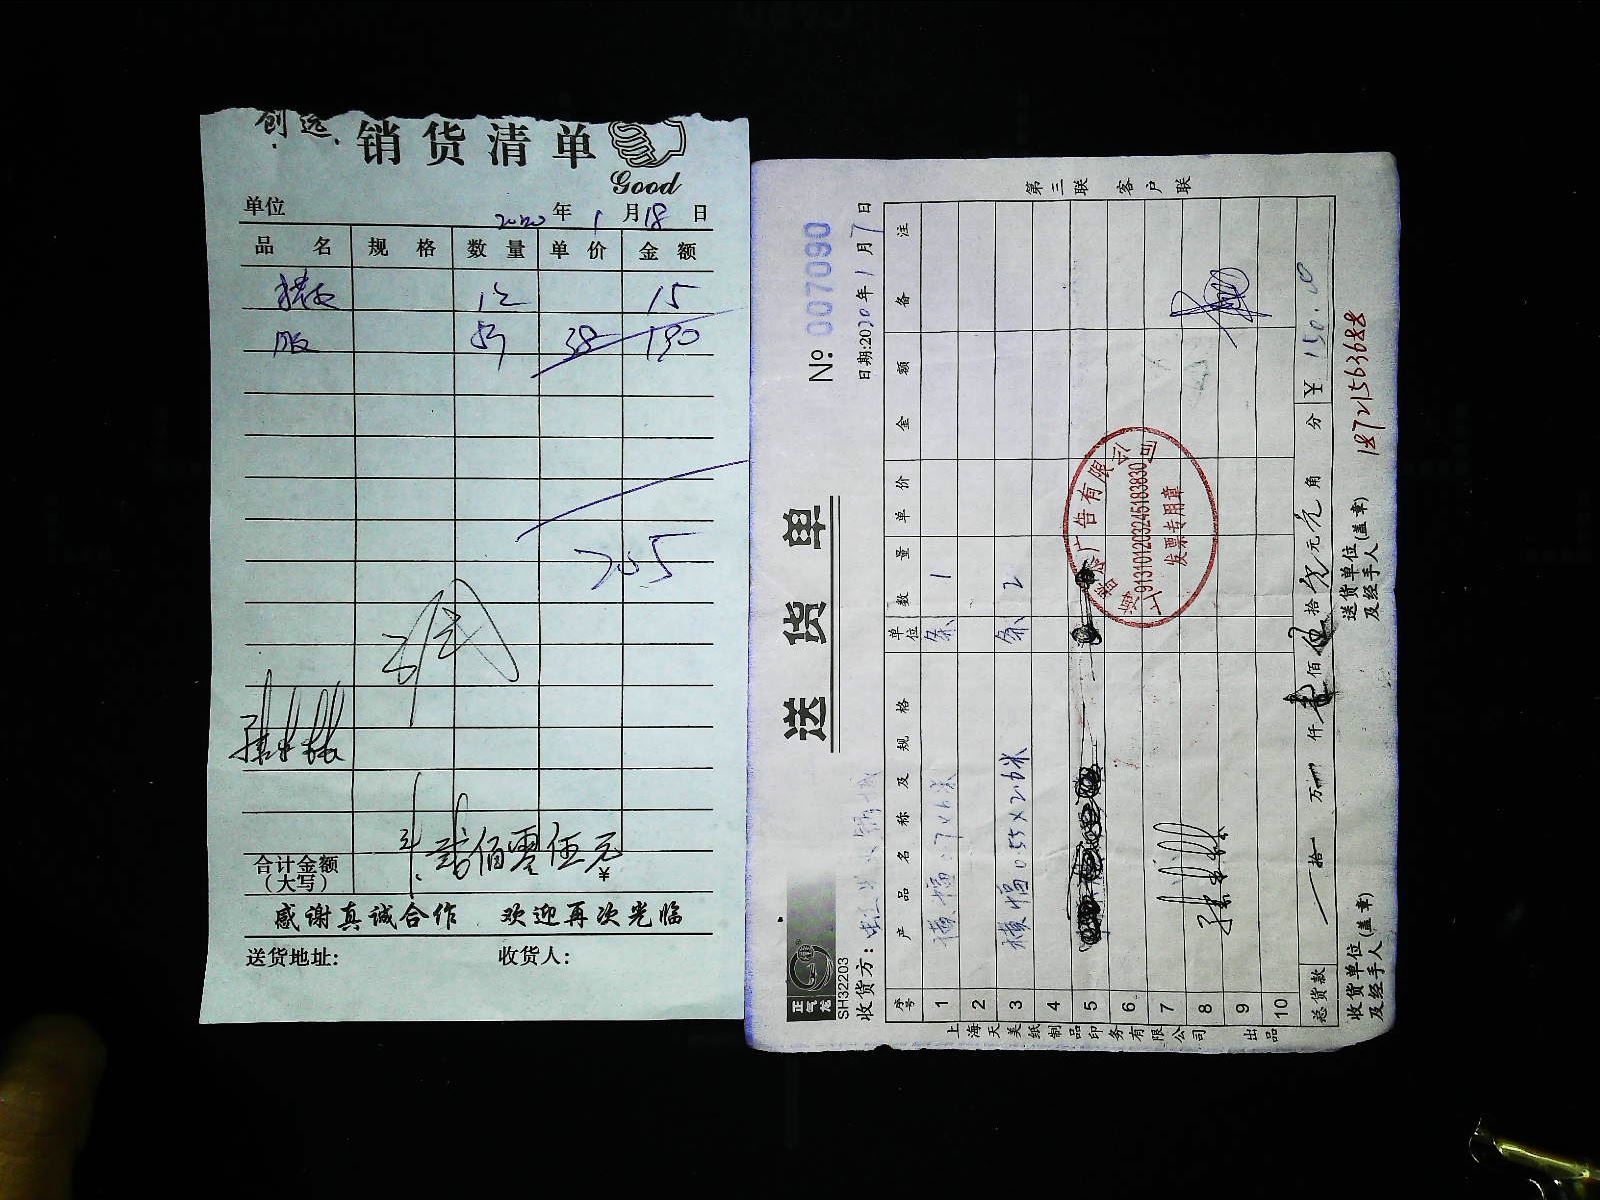 创远
销货清单
Good
单位
2020 年 1 月 18 日
品 名 规 格 数 量 单 价 金 额
15
38 190
205
合计金额
(大写)
贰佰零伍元
¥
感谢真诚合作 欢迎再次光临
送货地址: 收货人:
第三联 客户联
送 货 单
№: 007090
正气龙
SH32203
收货方:
日期:2020年1月7日
序号 产品名称及规格 单位 数量 单价 金额 备注
1 横幅 0.7×6米 条 1
2
3 横幅 0.55×2.6米 条 2
4
5
6
7
8
9
10
广告有限公司
913101120324518383 0
发票专用章
总货款 拾 万 仟 佰 伍 拾 元 角 分 ¥ 150.00
收货单位(盖章)
及经手人
送货单位(盖章)
及经手人
18721563688
上海天美纸制品印务有限公司 出品